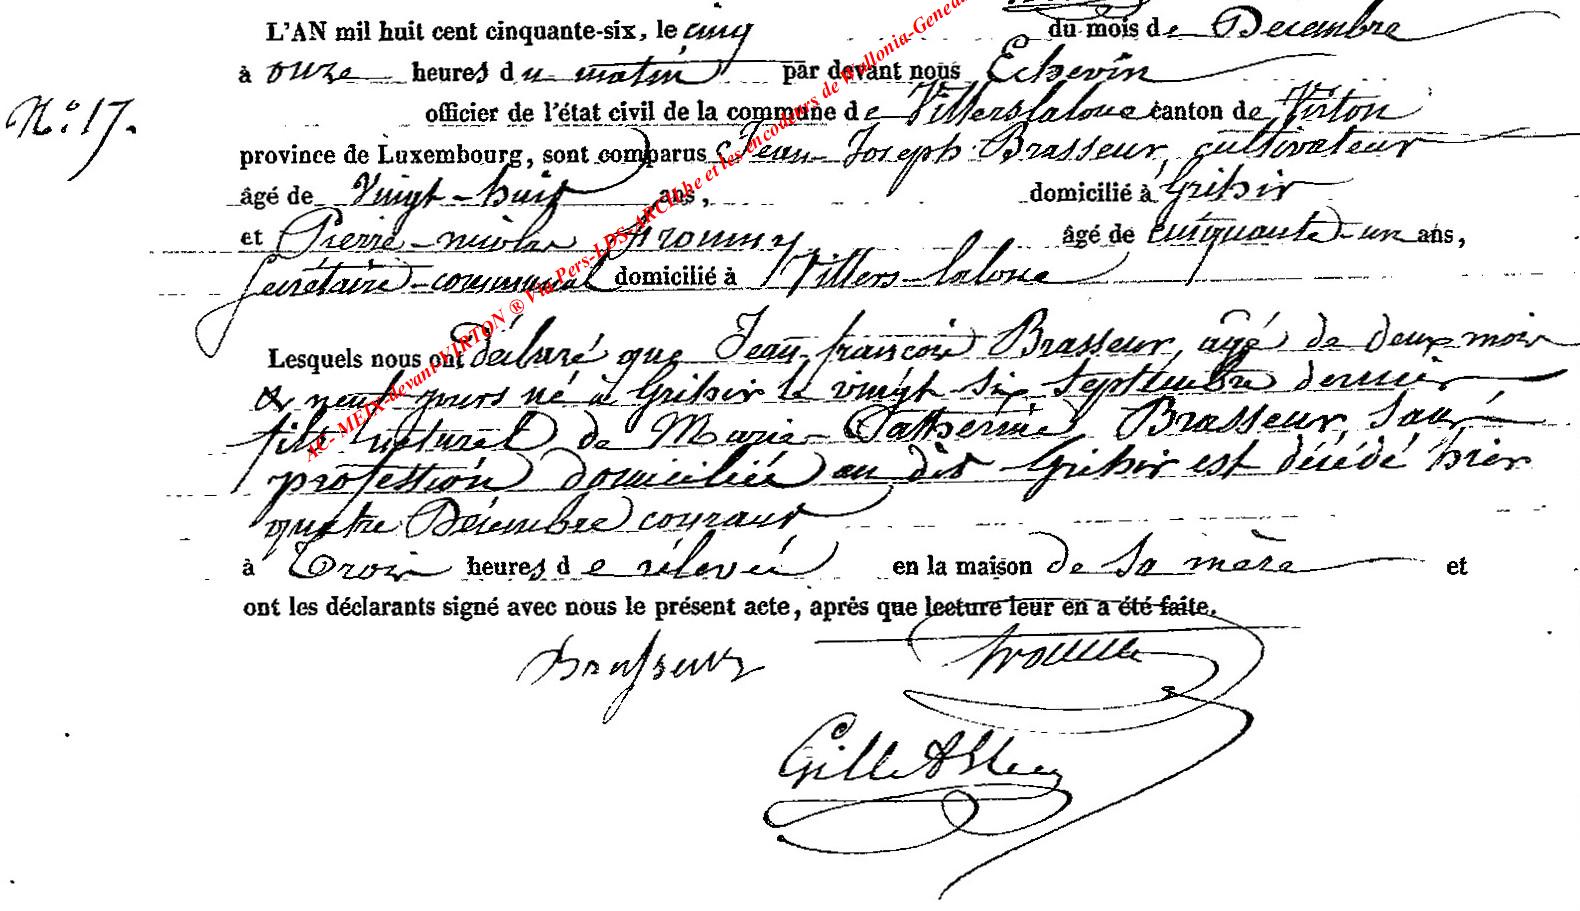 L'AN mil huit cent cinquante-six, le cinq du mois de Decembre
à onze heures du matin par devant nous Echevin
officier de l'état civil de la commune de Villerslaloue canton de Virton
N.o 17.
province de Luxembourg, sont comparus Jean-Joseph Brasseur, cultivateur
âgé de Vingt-huit ans, domicilié à Grihir
et Pierre-nicolas âgé de cinquante-un ans,
Secrétaire-communal domicilié à Villers-laloue
Lesquels nous ont déclaré que Jean-françois Brasseur, agé de deux mois
& neuf jours né à Grihir le vingt six Septembre dernier
fils naturel de Marie-Catherine Brasseur, Sans
profession domiciliée au dit Grihir est décédé hier
quatre Décembre courant
à Trois heures de rélevée en la maison de Sa mère et
ont les déclarants signé avec nous le présent acte, après que lecture leur en a été faite.
Brasseur
Gille
AC- MEIX-devant-VIRTON ® Via Pers-LDS-ARCH.be et les encodeurs de Wallonia-Genea